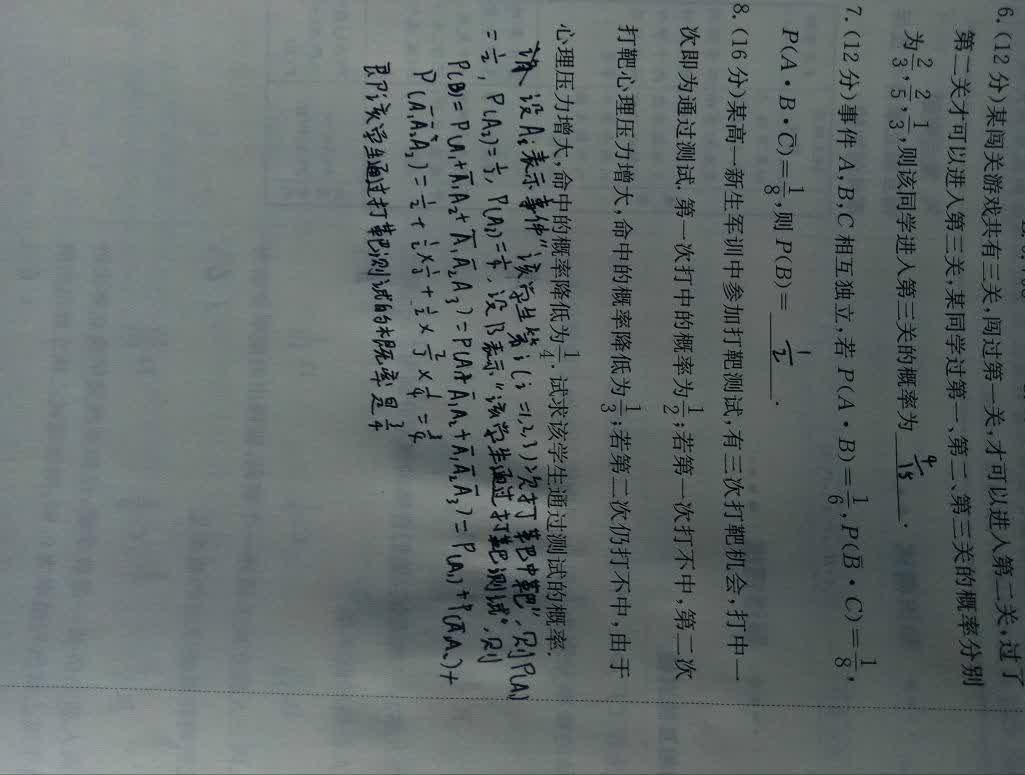 6. (12分)某闯关游戏共有三关,闯过第一关,才可以进入第二关,过了
第二关才可以进入第三关,某同学过第一、第二、第三关的概率分别
为2/3,2/5,1/3,则该同学进入第三关的概率为 4/15 .
7. (12分)事件A,B,C相互独立,若P(A·B)=1/6,P(B̄·C)=1/8,
P(A·B·C̄)=1/8,则P(B)= 1/2 .
8. (16分)某高一新生军训中参加打靶测试,有三次打靶机会,打中一
次即为通过测试.第一次打中的概率为1/2;若第一次打不中,第二次
打靶心理压力增大,命中的概率降低为1/3;若第二次仍打不中,由于
心理压力增大,命中的概率降低为1/4.试求该学生通过测试的概率.
设Ai表示事件“该学生第i(i=1,2,3)次打靶中靶”,则P(A1)
=1/2,P(A2)=1/3,P(A3)=1/4,设B表示“该学生通过打靶测试”,则
P(B)=P(A1+Ā1A2+Ā1Ā2A3)=P(A1+Ā1A2+Ā1Ā2A3)=P(A1)+P(Ā1A2)+
P(Ā1Ā2A3)=1/2+1/2×1/3+1/2×2/3×1/4=3/4
即该学生通过打靶测试的概率是3/4